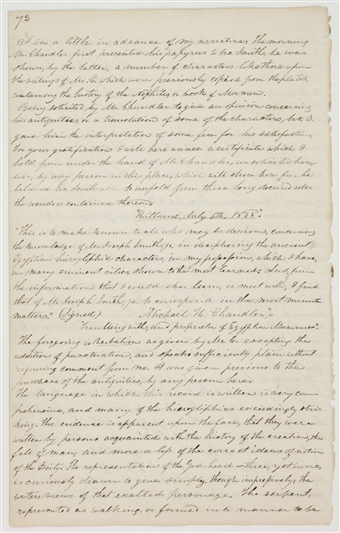 72
I am a little in advance of my narrative. The morning
Mr. Chandler first presented his papyrus to bro. Smith, he was
shown, by the latter, a number of characters like those upon
the writings of Mr. C. which were previously copied from the plates,
containing the history of the Nephites, or book of Mormon.
Being solicited by Mr. Chandler to give an opinion concerning
his antiquities, or a translation of some of the characters, bro. S.
gave him the interpretation of some few for his satisfaction.
For your gratification I will here annex a certificate which I
hold, from under the hand of Mr. Chandler, unsolicited, how-
ever, by any person in this place, which will show how far he
believed bro. Smith able to unfold from these long obscured rolls
the wonders contained therein
"Kirtland, July 6th. 1835".
"This is to make known to all who may be desirous, concerning
the knowledge of Mr. Joseph Smith, jr. in deciphering the ancient
Egyptian hieroglyphic characters, in my possession, which I have,
in many eminent cities, shown to the most learned: And, from
the information that I could ever learn, or meet with, I find
that of Mr. Joseph Smith, jr. to correspond in the most minute
matters." (Signed) Michael H. Chandler".
"Travelling with, and proprietor of Egyptian Mummies".
The foregoing is verbatim as given by Mr. C. excepting the
addition of punctuation, and speaks sufficiently plain without
requiring comment from me. It was given previous to the
purchase of the antiquities, by any person here.
The language in which this record is written is very com-
prehensive, and many of the hieroglyphics exceedingly stri-
king. The evidence is apparent upon the face, that they were
written by persons acquainted with the history of the creation, the
fall of man, and more or less of the correct ideas of notions
of the Deity. The representation of the God-head—three, yet in one,
is curiously drawn to give simply, though impressively, the
writers views of that exalted personage. The serpent,
represented as walking, or formed in a manner to be